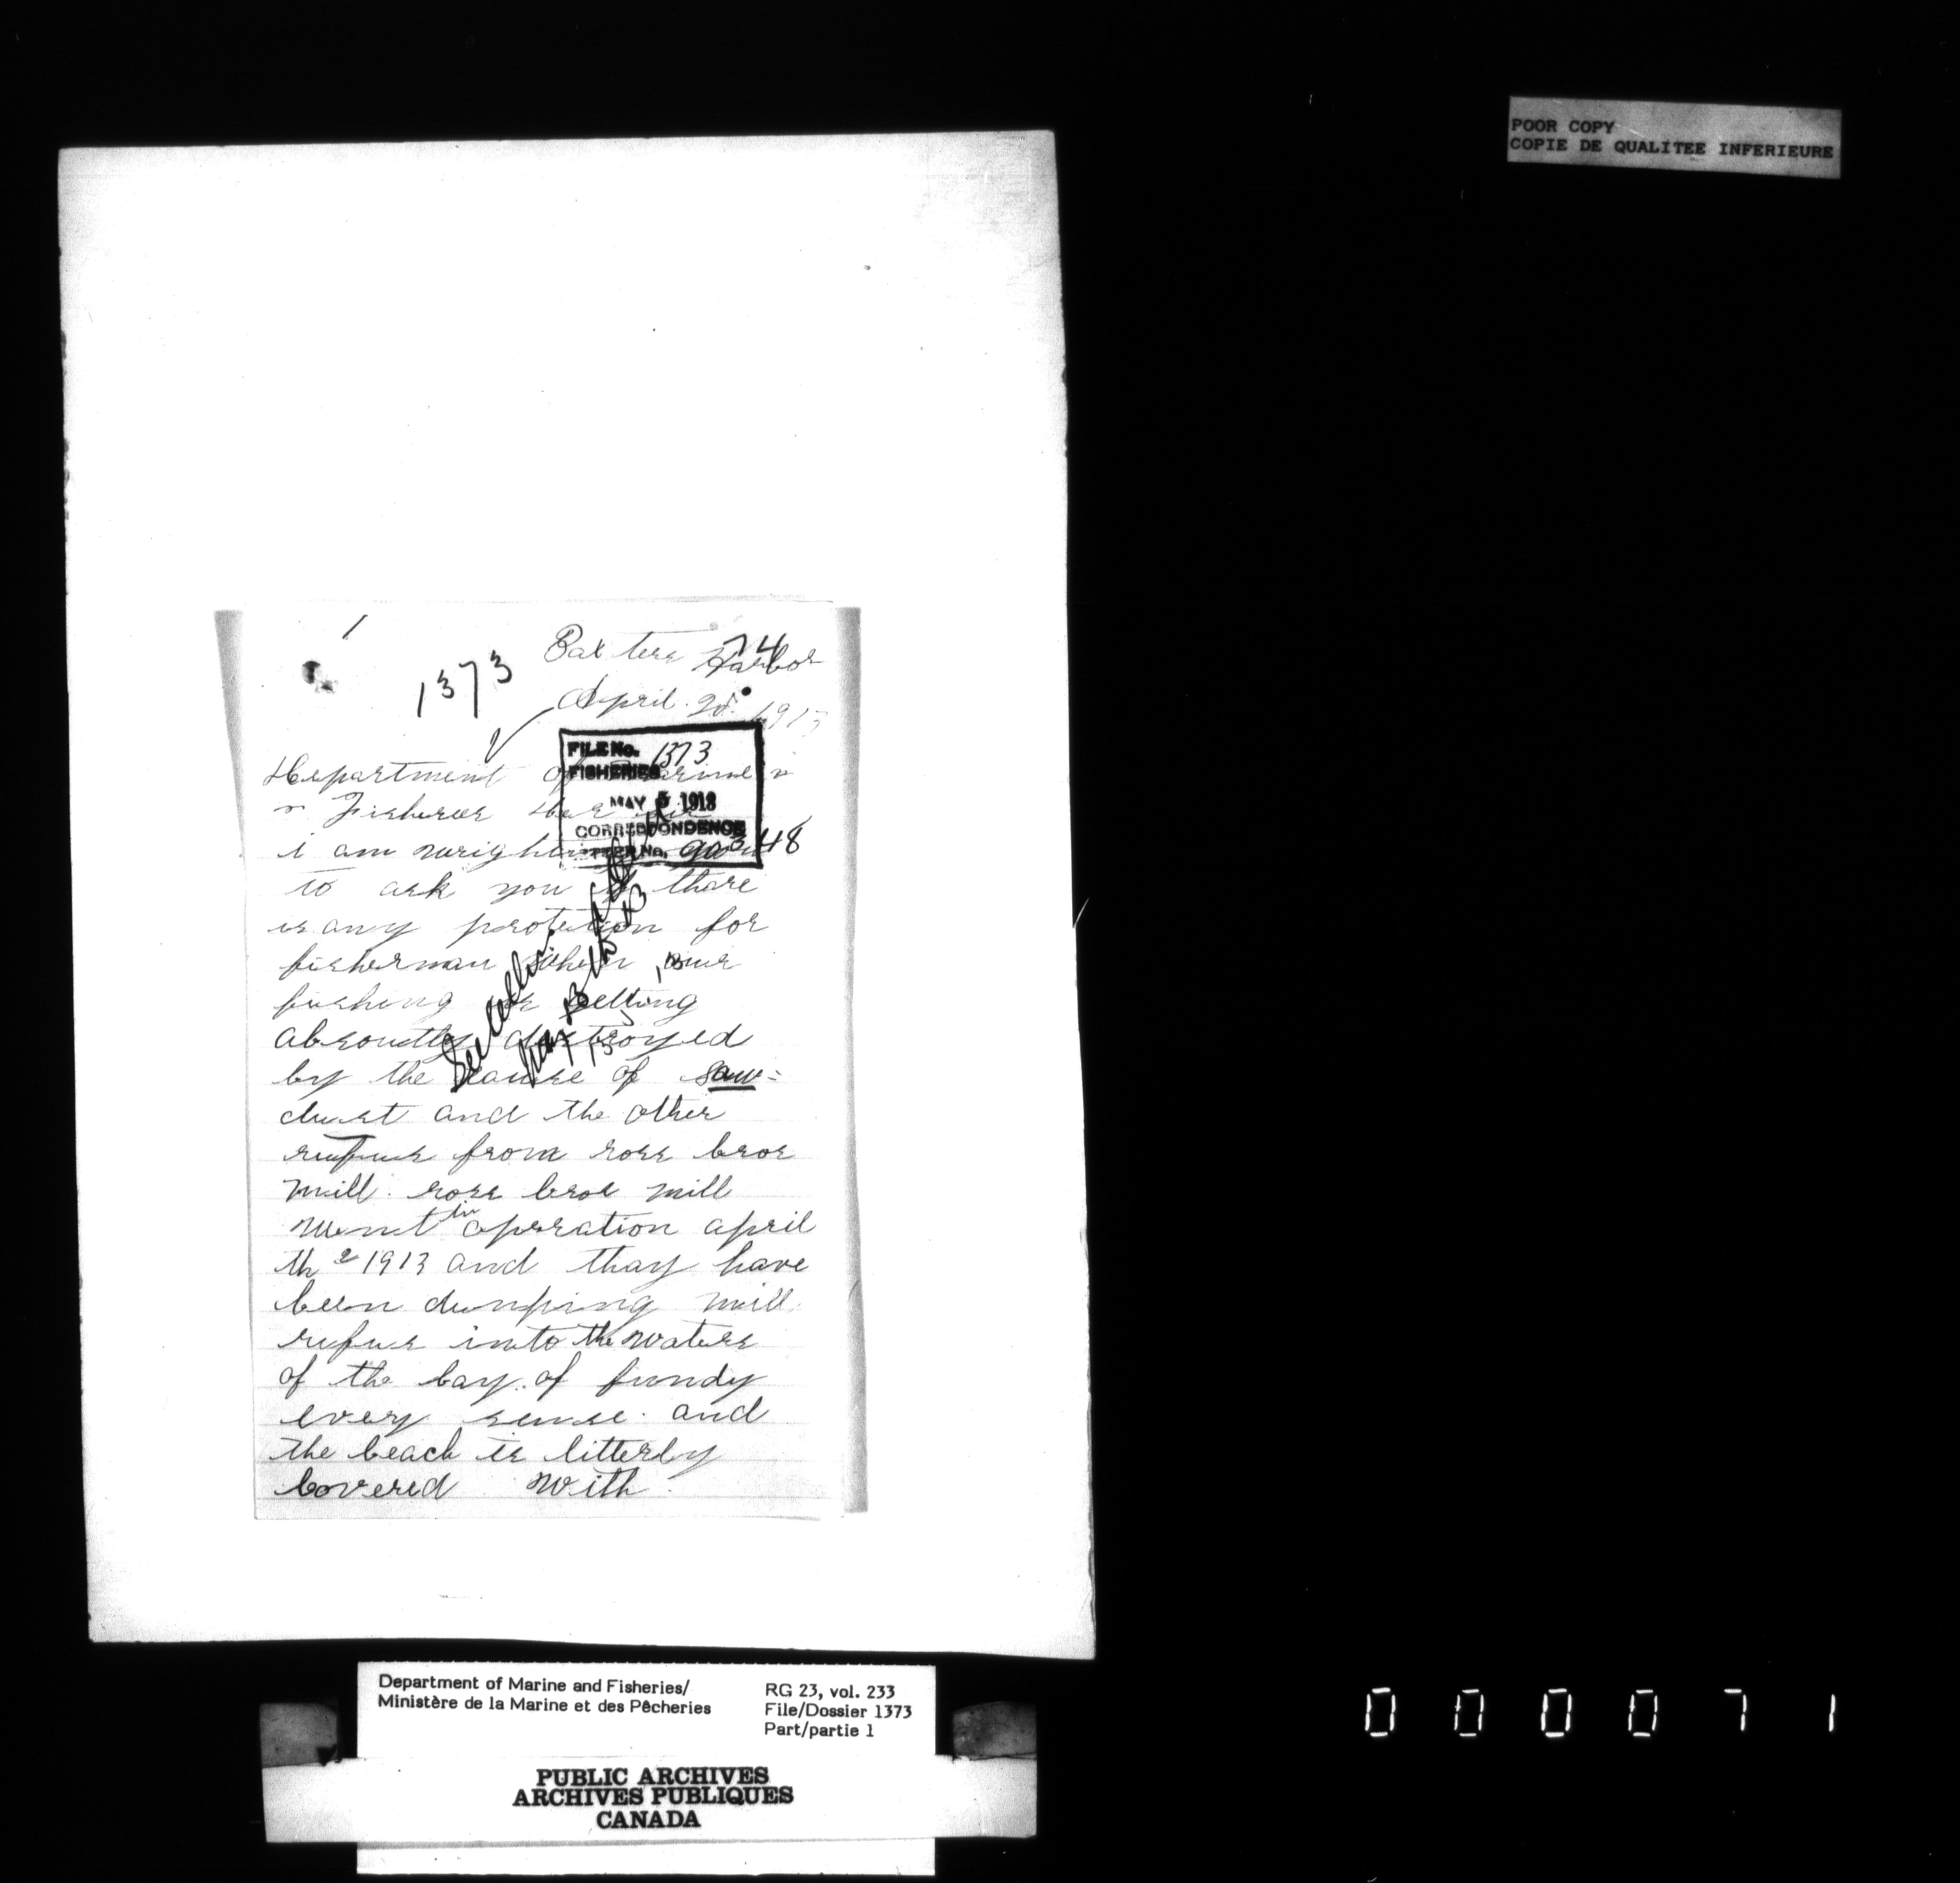 POOR COPY
COPIE DE QUALITEE INFERIEURE
1
74
1373
Baxters Harbor
April. 28. 1913
FILE No. 1373
FISHERIES
MAY 5 1913
CORRESPONDENCE
LETTER No. 90348
Department of Marine
& Fisheres Dear Sir
i am wrighting
to ask you if thare
is any protection for
fisherman when our
fishing is getting
absoutly destroyed
by the cause of saw=
dust and the other
rufuse from ross bros
mill. ross bros mill
went in operation april
th 2 1913 and thay have
been dumping mill
rufus into the waters
of the bay of fundy
every sense. and
the beach is litterly
covered with
Department of Marine and Fisheries/
Ministère de la Marine et des Pêcheries
RG 23, vol. 233
File/Dossier 1373
Part/partie 1
PUBLIC ARCHIVES
ARCHIVES PUBLIQUES
CANADA
000071